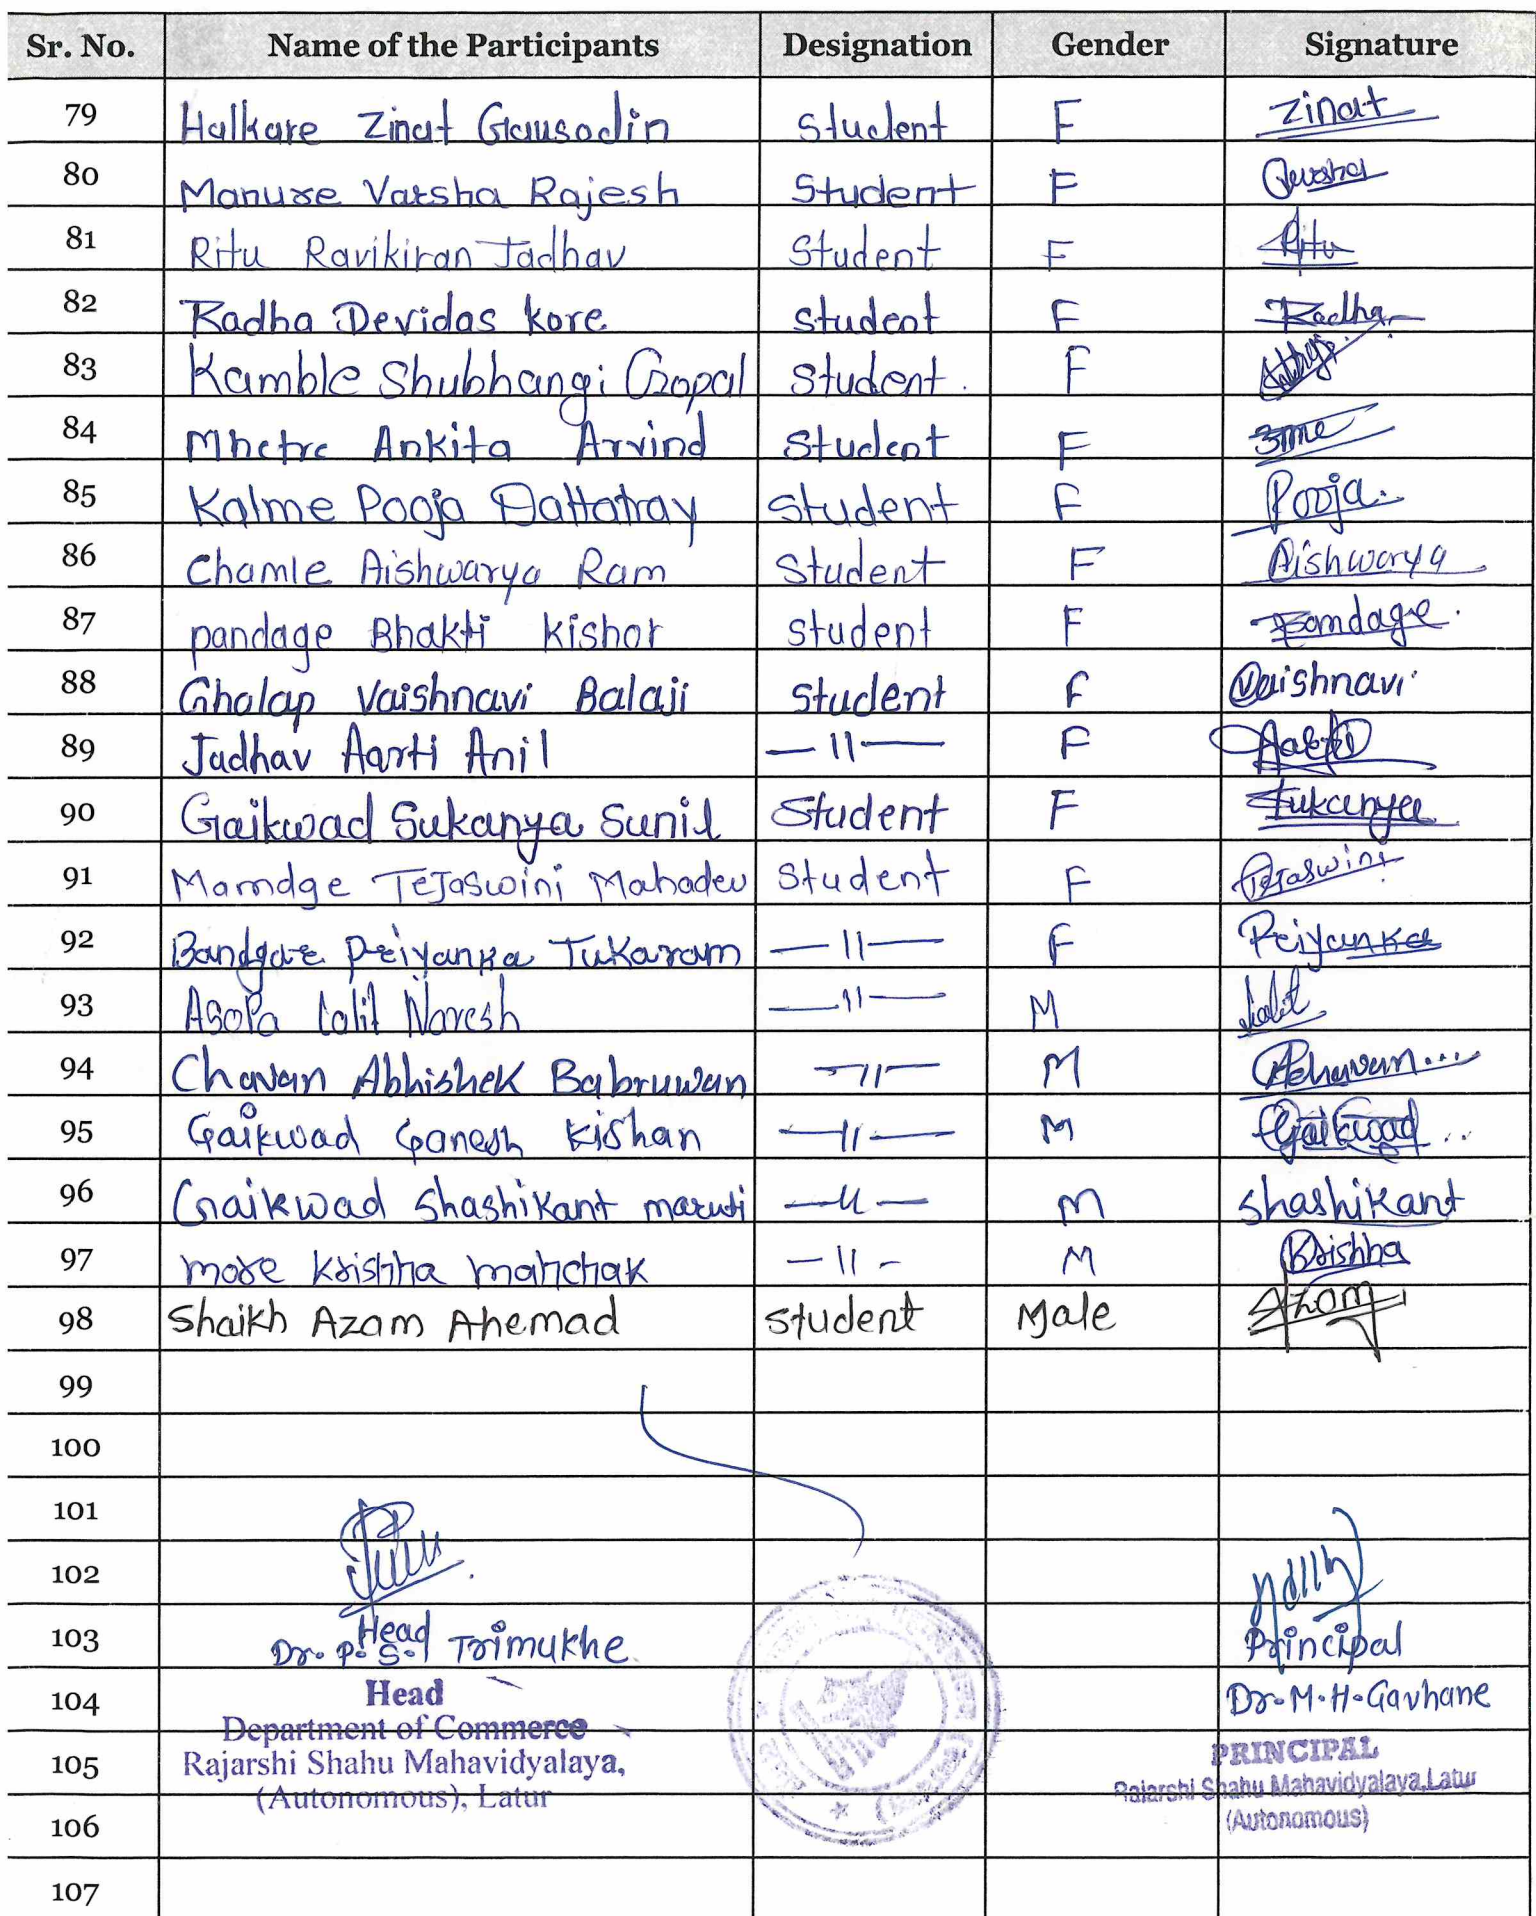 Sr. No. Name of the Participants Designation Gender Signature
79 Halkare Zinat Gausodin Student F Zinat
80 Manure Varsha Rajesh Student F
81 Ritu Ravikiran Jadhav Student F Ritu
82 Radha Devidas Kore Student F Radha
83 Kamble Shubhangi Gopal Student. F
84 Mhetre Ankita Arvind Student F
85 Kalme Pooja Dattatray Student F Pooja
86 Chamle Aishwarya Ram Student F Aishwarya
87 pandage Bhakti Kishor Student F Pandage
88 Gholap Vaishnavi Balaji Student F Vaishnavi
89 Jadhav Aarti Anil —11— F Aarti
90 Gaikwad Sukanya Sunil Student F Sukanya
91 Mamdge Tejaswini Mahadev Student F Tejaswini
92 Bandgar Priyanka Tukaram —11— F Priyanka
93 Asopa Lalit Naresh —11— M Lalit
94 Chavan Abhishek Babruwan —11— M
95 Gaikwad Ganesh Kishan —11— M Gaikwad
96 Gaikwad Shashikant maruti —11— M Shashikant
97 more Krishna manchak —11— M Krishna
98 Shaikh Azam Ahemad Student Male Azam
99
100
101
102
103 Head Principal
Dr. P. S. Trimukhe
104 Head Dr. M. H. Gavhane
Department of Commerce
105 Rajarshi Shahu Mahavidyalaya, PRINCIPAL
(Autonomous), Latur Rajarshi Shahu Mahavidyalaya, Latur
106 (Autonomous)
107